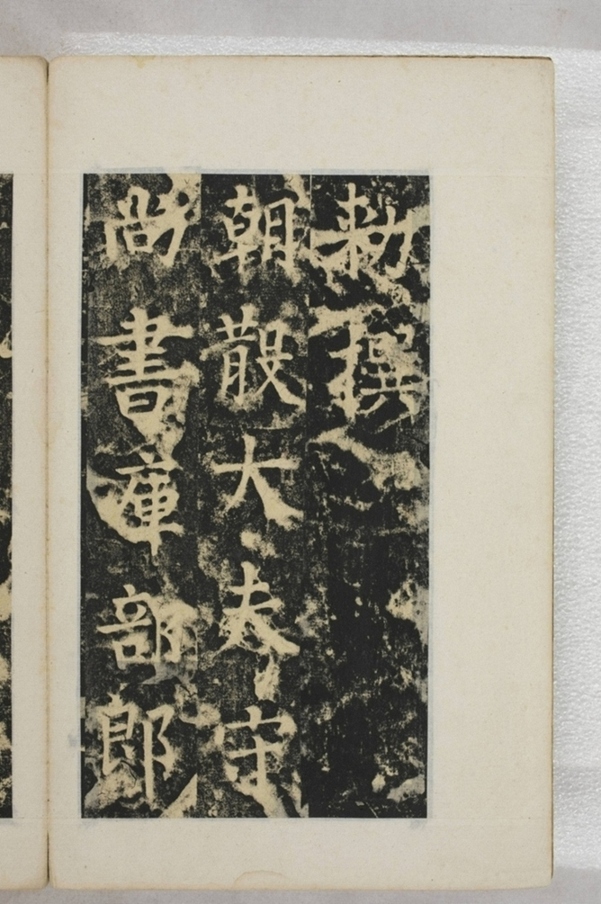 勅撰
朝散大夫守
尚書庫部郎